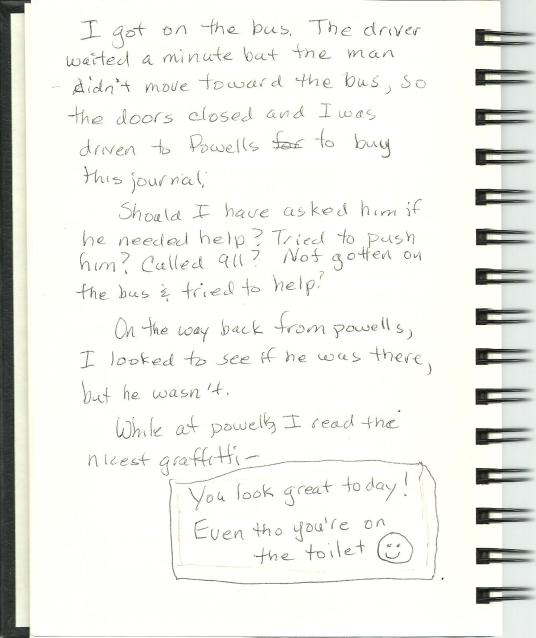 I got on the bus. The driver
waited a minute but the man
didn't move toward the bus, so
the doors closed and I was
driven to Powells for to buy
this journal.
Should I have asked him if
he needed help? Tried to push
him? Called 911? Not gotten on
the bus & tried to help?
On the way back from powells,
I looked to see if he was there,
but he wasn't.
While at powells, I read the
nicest graffitti-
You look great today!
Even tho you're on
the toilet